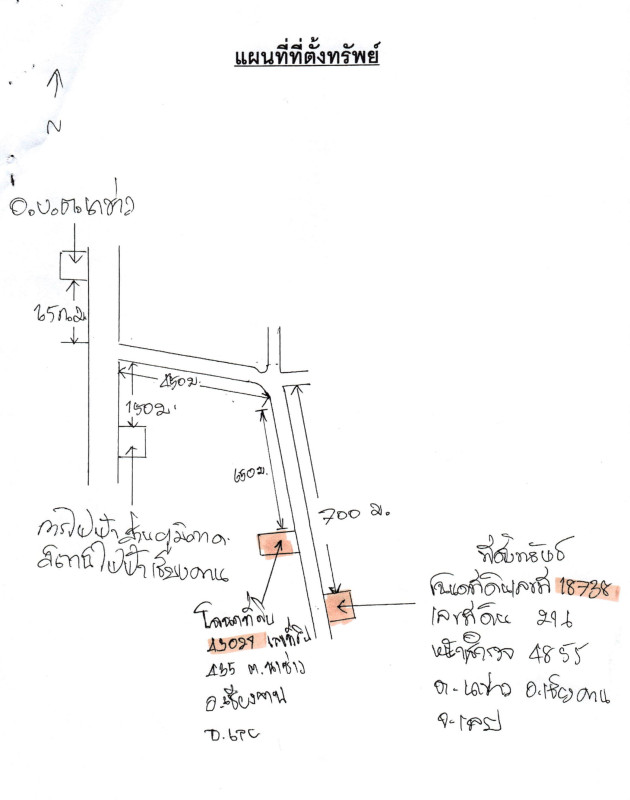 แผนที่ที่ตั้งทรัพย์
N
อ.บ.ต.นาซ่าว
450 ม.
150 ม.
650 ม.
700 ม.
การไฟฟ้าส่วนภูมิภาค
สถานีไฟฟ้าเชียงคาน
ที่ตั้งทรัพย์
โฉนดที่ดินเลขที่ 18738
เลขที่ดิน
หน้าสำรวจ 4855
ต.นาซ่าว อ.เชียงคาน
จ.เลย
โฉนดที่ดิน
เลขที่ดิน
435 ต.นาซ่าว
อ.เชียงคาน
จ.เลย